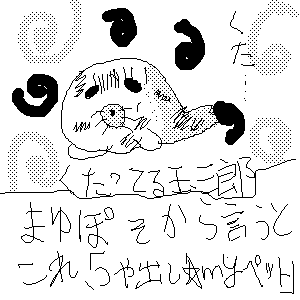 くた……
たってる玉三郎
まゆぽそから言うと
これ 出し ペット